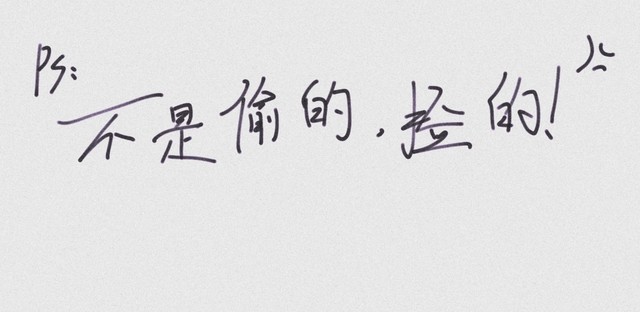 Ps:
不是偷的，捡的!